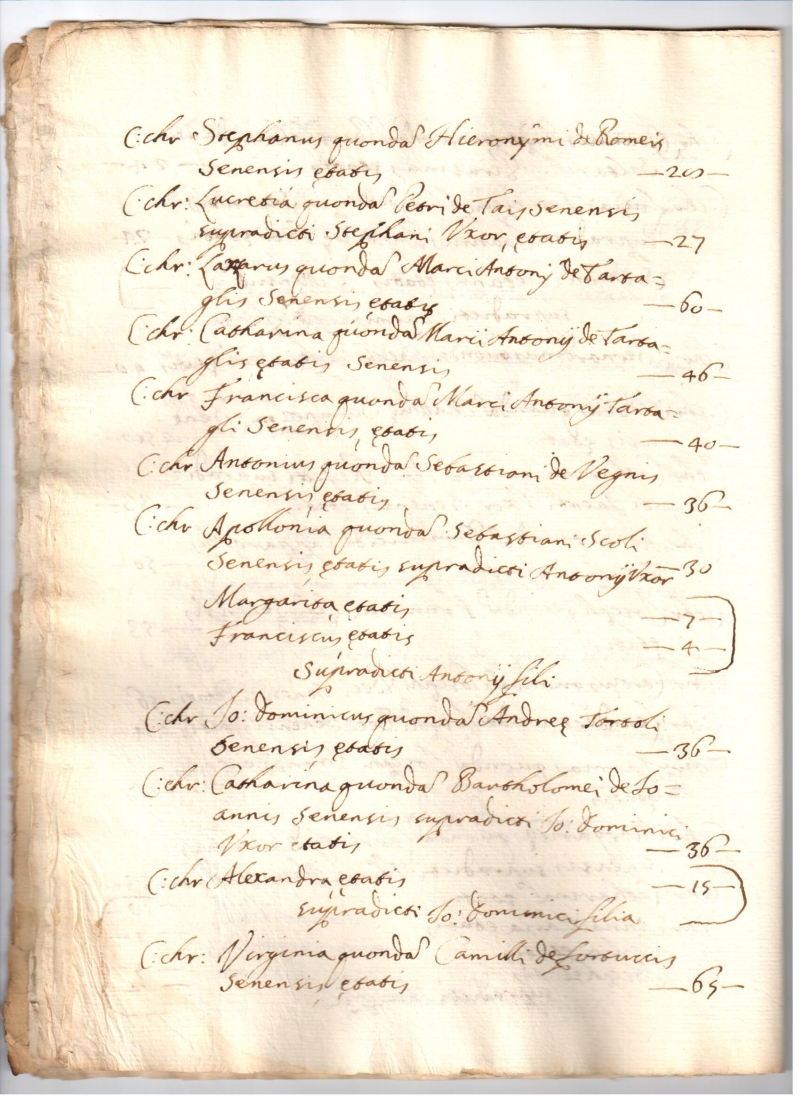 C: chr Stephanus quonda͂ Hieronymi de Romeis
Senensis ętatis —20—
C: chr: Lucretia quonda͂ Petri de Tais Senensis
supradicti Stephani Vxor, ętatis —27
C: chr: Lazarus quonda͂ Marci Antonij de Tarta=
glis Senensis ętatis —60—
C: chr: Catharina quonda͂ Marci Antonij de Tarta-
glis ętatis Senensis —46—
C: chr Francisca quonda͂ Marci Antonij Tarta=
gli Senensis, ętatis —40—
C: chr Antonius quonda͂ Sebastiani de Vegnis
Senensis, ętatis —36—
C: chr Apollonia quonda͂ Sebastiani Scoli
Senensis ętatis supradicti Antonij Vxor —30
Margarita ętatis —7—
Franciscus ętatis —4—
Supradicti Antonij fili
C: chr Jo: Dominicus quonda͂ Andreę Tortoli
Senensis, ętatis —36—
C: chr: Catharina quonda͂ Bartholomei de Jo=
annis Senensis supradicti Jo: Dominici
Vxor etatis —36—
C: chr Alexandra ętatis —15—
supradicti Jo: Dominici filia
C: chr: Virginia quonda͂ Camilli de
Senensis, ętatis —65—